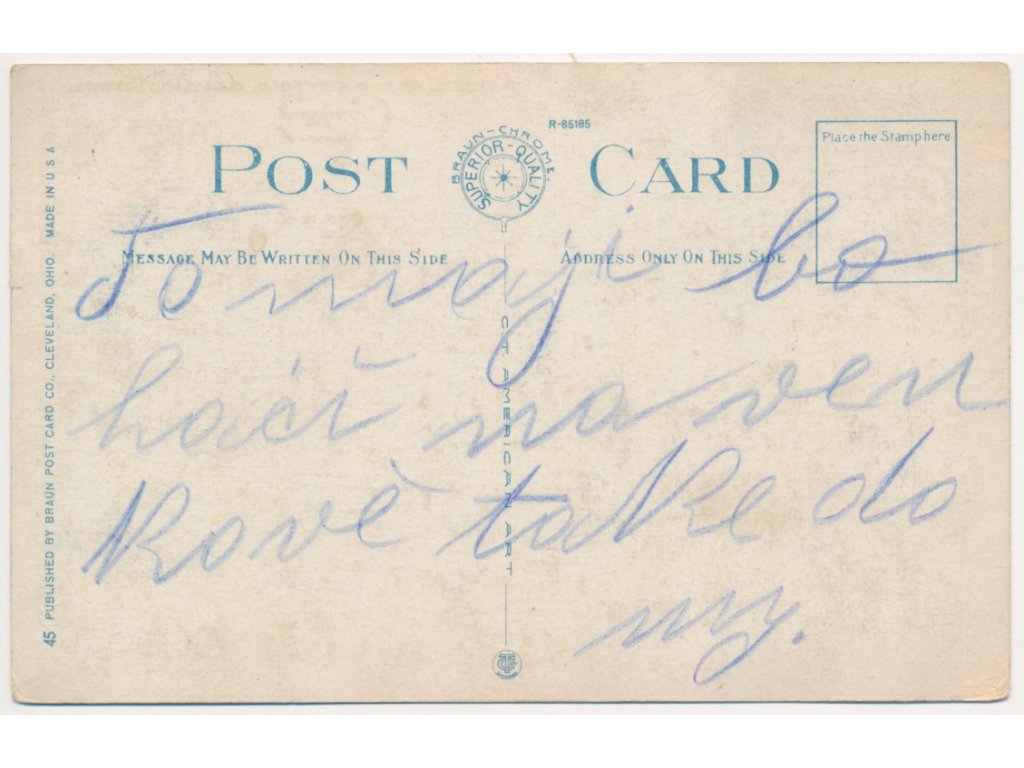 R-85185
BRAUN-CHROME
SUPERIOR-QUALITY
POST CARD
Place the Stamp here
MESSAGE MAY BE WRITTEN ON THIS SIDE
ADDRESS ONLY ON THIS SIDE
To maji bo
hači na ven
kově take do
my.
C.T. AMERICAN ART
45 PUBLISHED BY BRAUN POST CARD CO., CLEVELAND, OHIO. MADE IN U S A